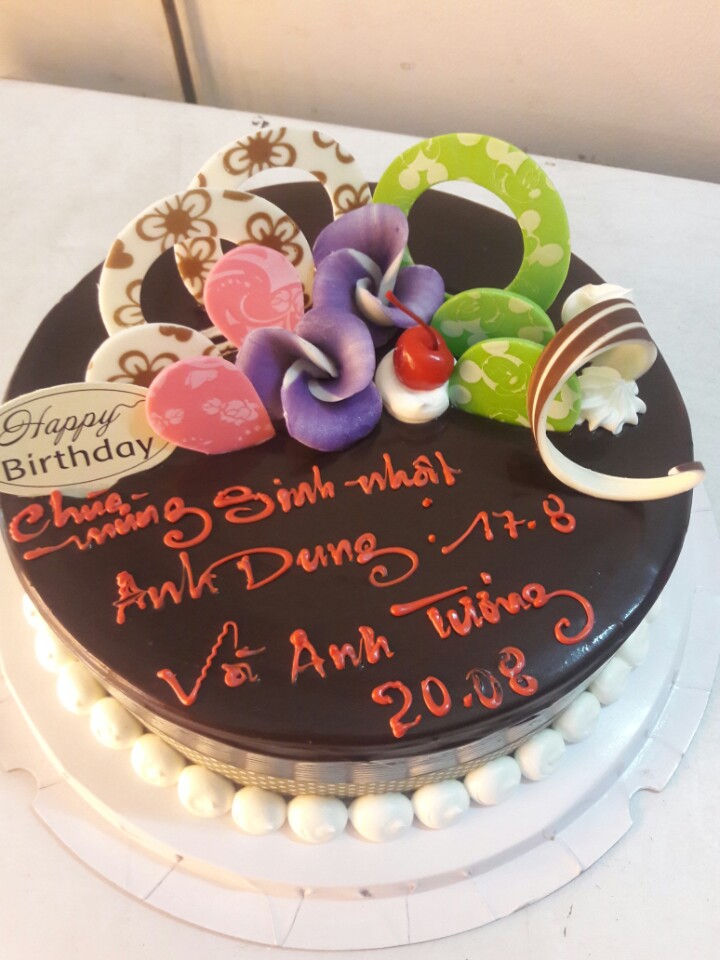 Happy
Birthday
Chúc mừng Sinh nhật
Anh Dung : 17.8
Với Anh Tưởng
20.08